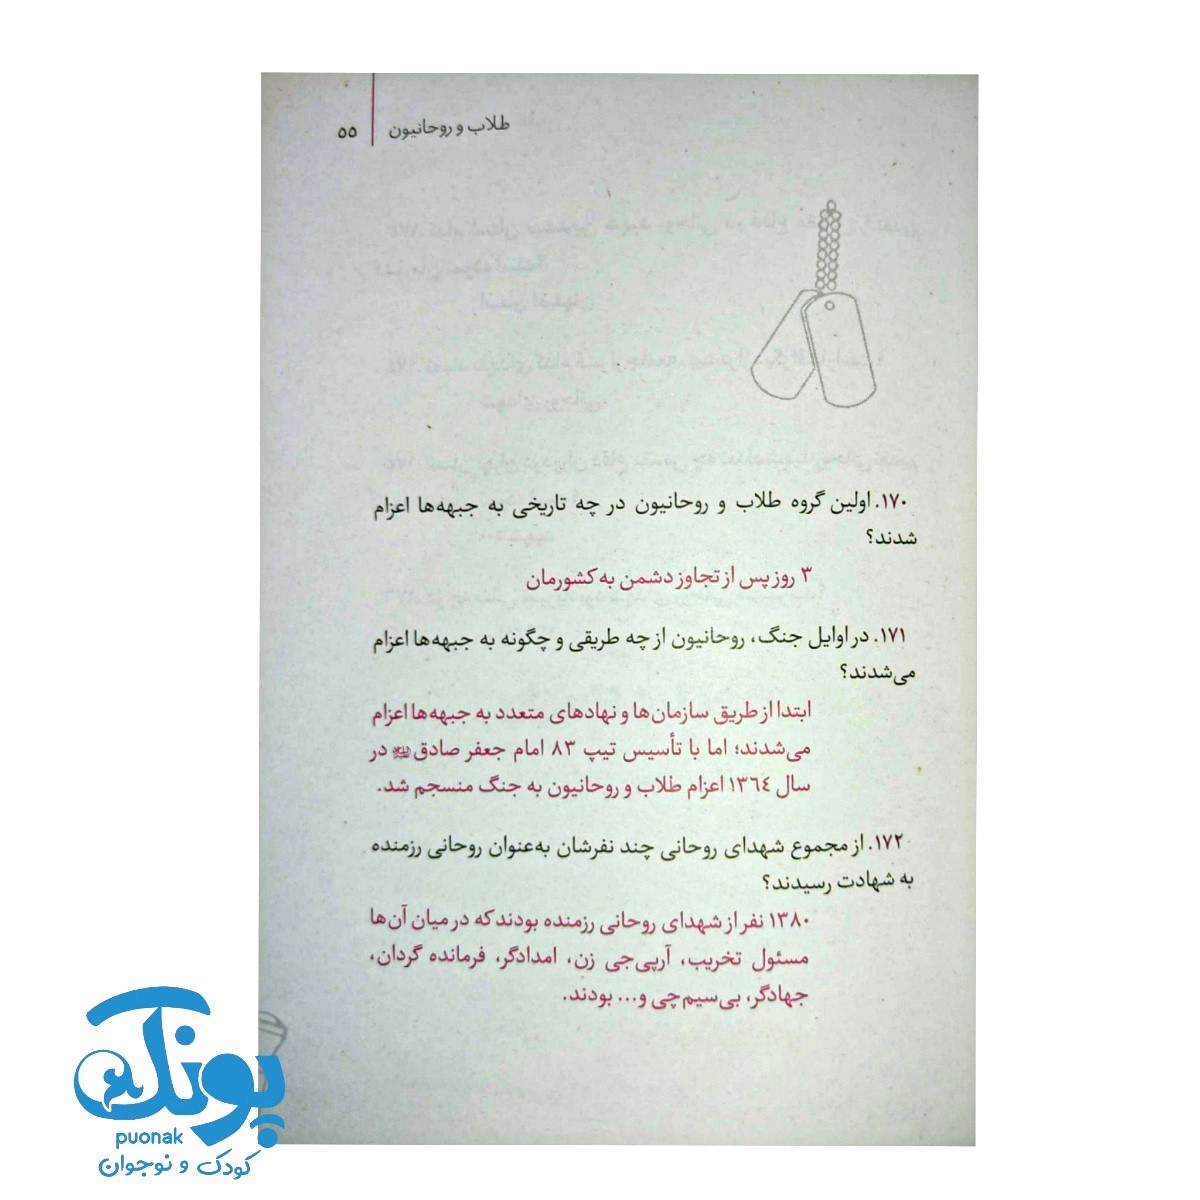 طلاب و روحانیون | ۵۵
۱۷۰. اولین گروه طلاب و روحانیون در چه تاریخی به جبهه‌ها اعزام
شدند؟
۳ روز پس از تجاوز دشمن به کشورمان
۱۷۱. در اوایل جنگ، روحانیون از چه طریقی و چگونه به جبهه‌ها اعزام
می‌شدند؟
ابتدا از طریق سازمان‌ها و نهادهای متعدد به جبهه‌ها اعزام
می‌شدند؛ اما با تأسیس تیپ ۸۳ امام جعفر صادق در
سال ۱۳۶۴ اعزام طلاب و روحانیون به جنگ منسجم شد.
۱۷۲. از مجموع شهدای روحانی چند نفرشان به‌عنوان روحانی رزمنده
به شهادت رسیدند؟
۱۳۸۰ نفر از شهدای روحانی رزمنده بودند که در میان آن‌ها
مسئول تخریب، آرپی‌جی زن، امدادگر، فرمانده گردان،
جهادگر، بی‌سیم‌چی و... بودند.
پونک
puonak
کودک و نوجوان